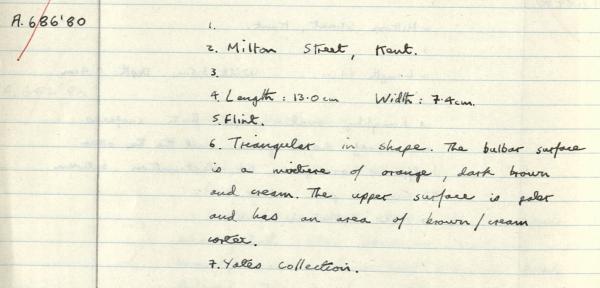 A.686'80
1.
2. Milton Street, Kent.
3.
4. Length: 13.0cm Width: 7.4cm.
5. Flint.
6. Triangular in shape. The bulbar surface
is a mixture of orange, dark brown
and cream. The upper surface is paler
and has an area of brown/cream
cortex.
7. Yates collection.